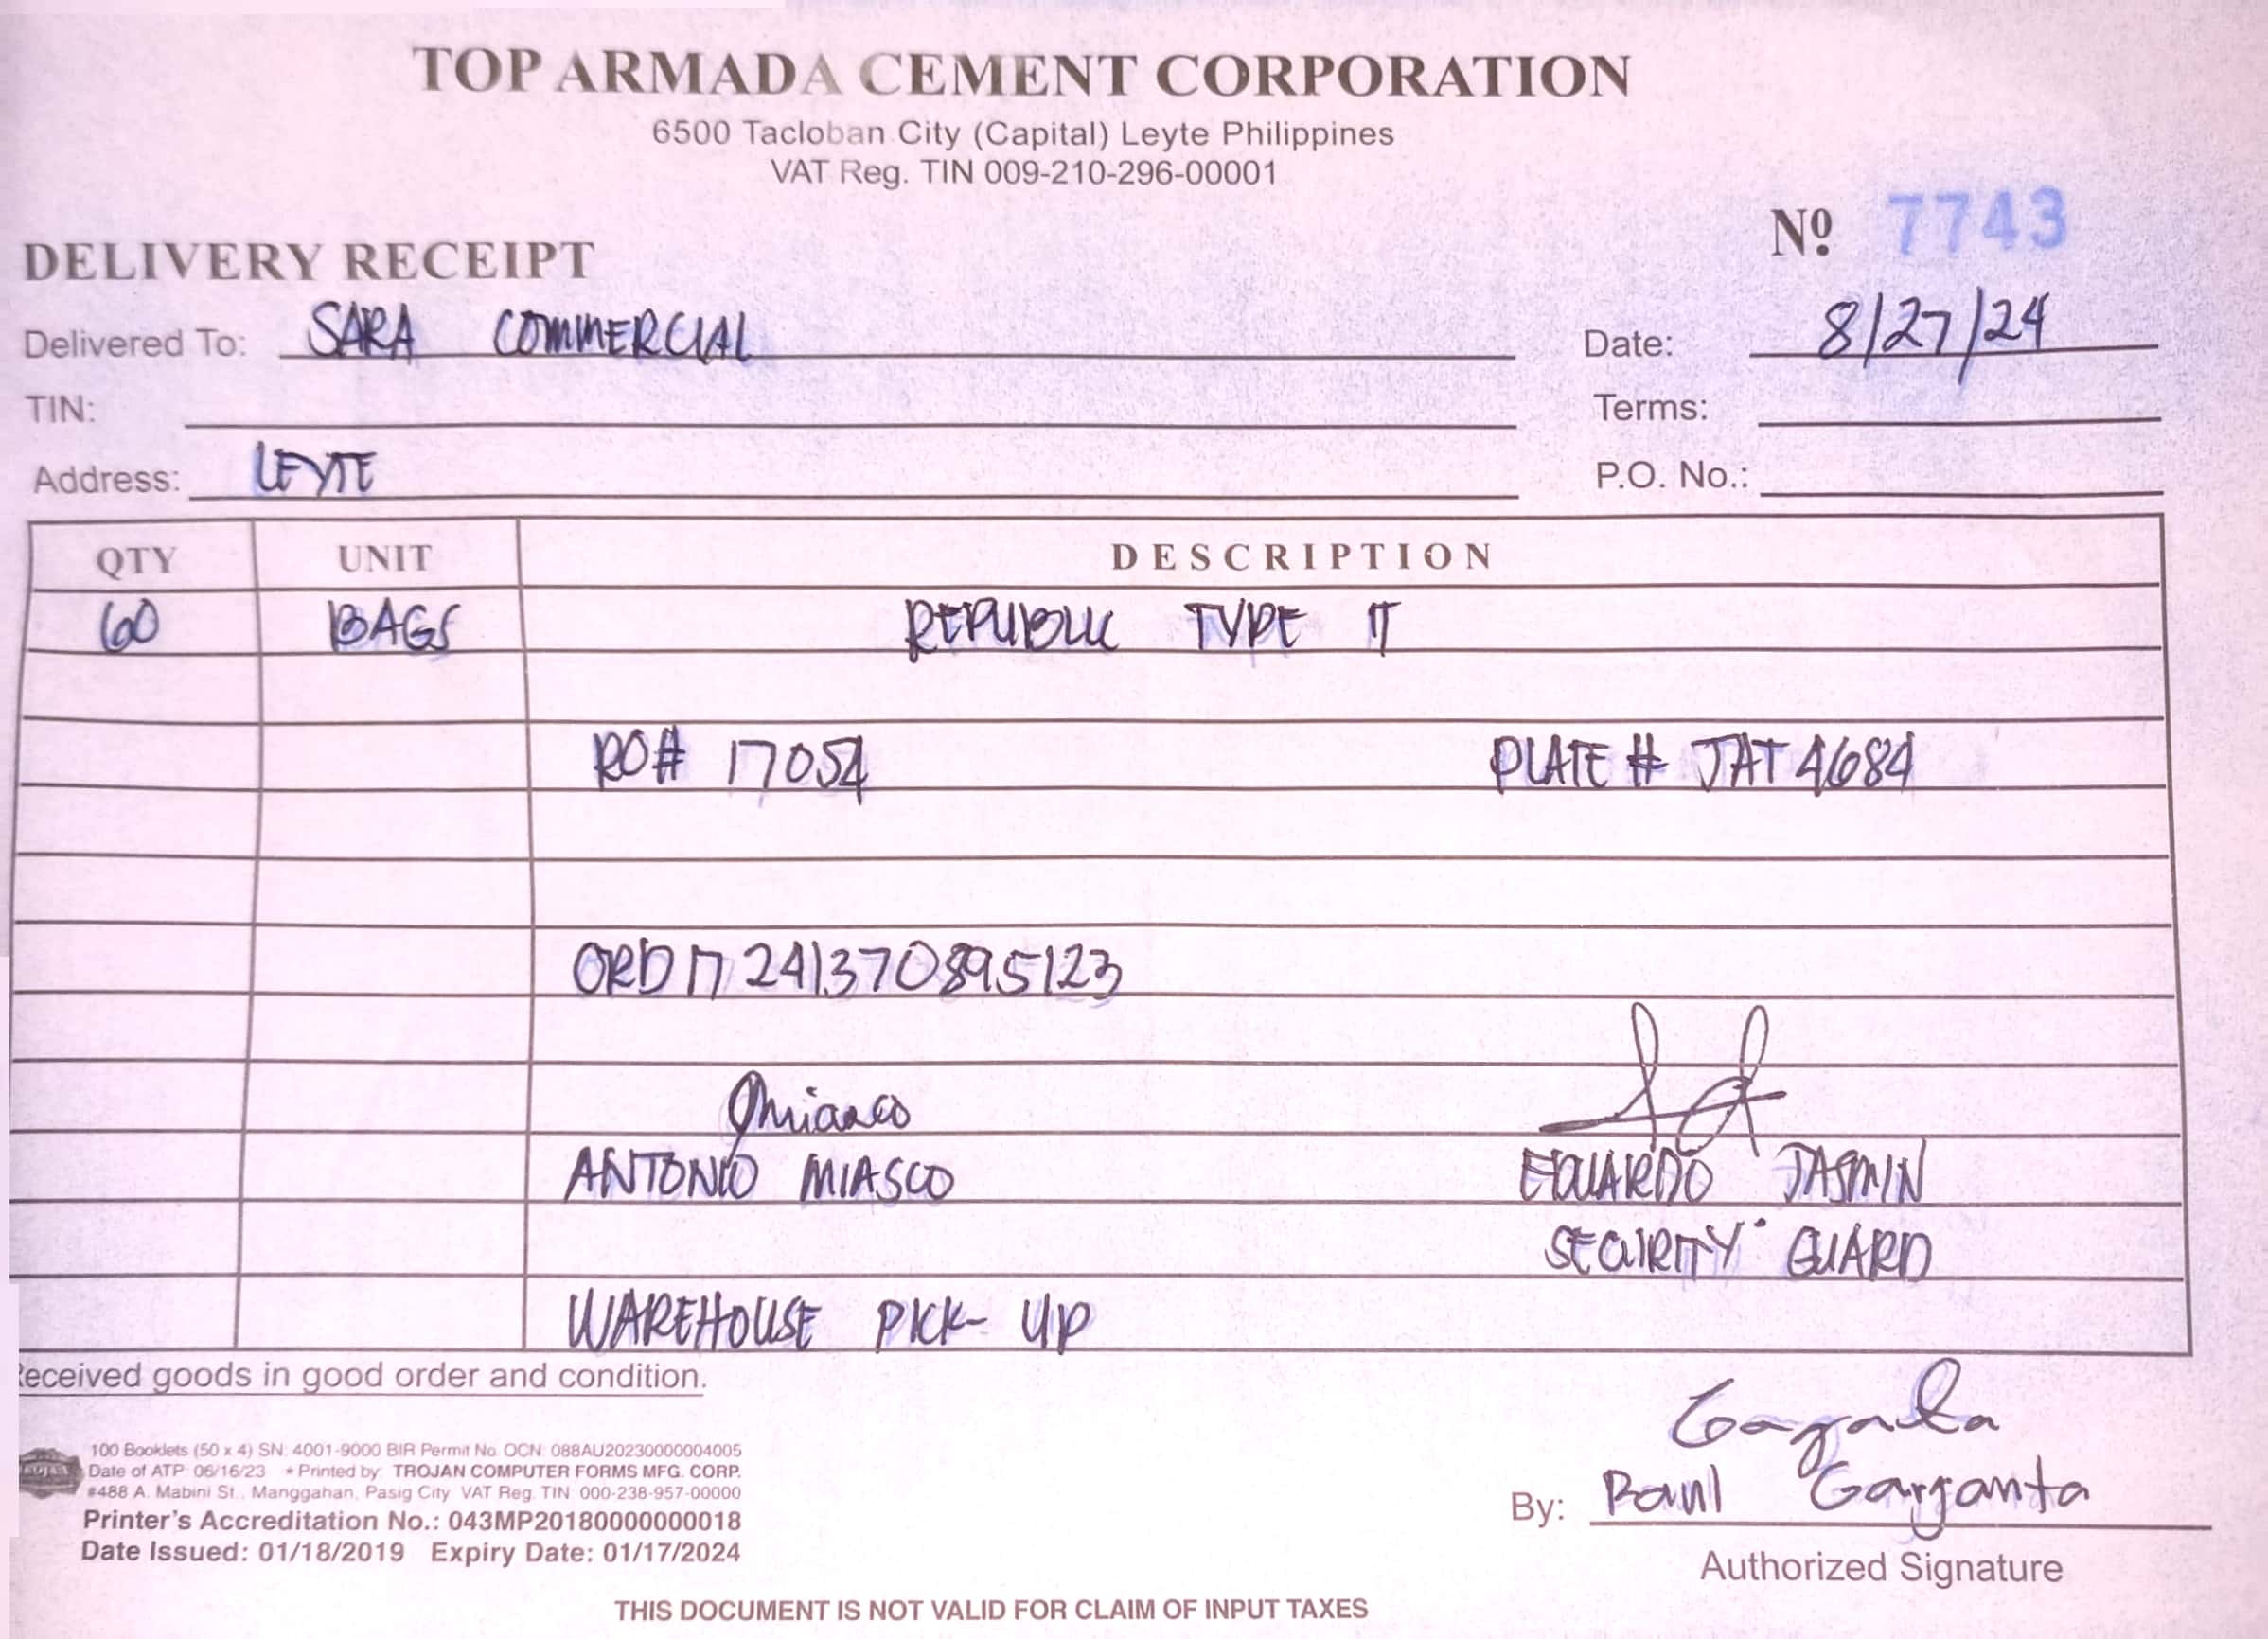 TOP ARMADA CEMENT CORPORATION
6500 Tacloban City (Capital) Leyte Philippines
VAT Reg. TIN 009-210-296-00001
Nº 7743
DELIVERY RECEIPT
Delivered To: SARA COMMERCIAL Date: 8/27/24
TIN: Terms:
Address: LEYTE P.O. No.:
QTY UNIT DESCRIPTION
60 BAGS REPUBLIC TYPE IT
RO# 17054 PLATE # JAT 4684
241370895123
ANTONIO MIASCO EDUARDO JASMIN
SECURITY GUARD
WAREHOUSE PICK-UP
eceived goods in good order and condition.
100 Booklets (50 x 4) SN: 4001-9000 BIR Permit No. OCN: 088AU20230000004005
Date of ATP: 06/16/23 * Printed by: TROJAN COMPUTER FORMS MFG. CORP.
#488 A. Mabini St., Manggahan, Pasig City VAT Reg. TIN 000-238-957-00000
Printer's Accreditation No.: 043MP20180000000018
Date Issued: 01/18/2019 Expiry Date: 01/17/2024
By: Raul Garganta
Authorized Signature
THIS DOCUMENT IS NOT VALID FOR CLAIM OF INPUT TAXES